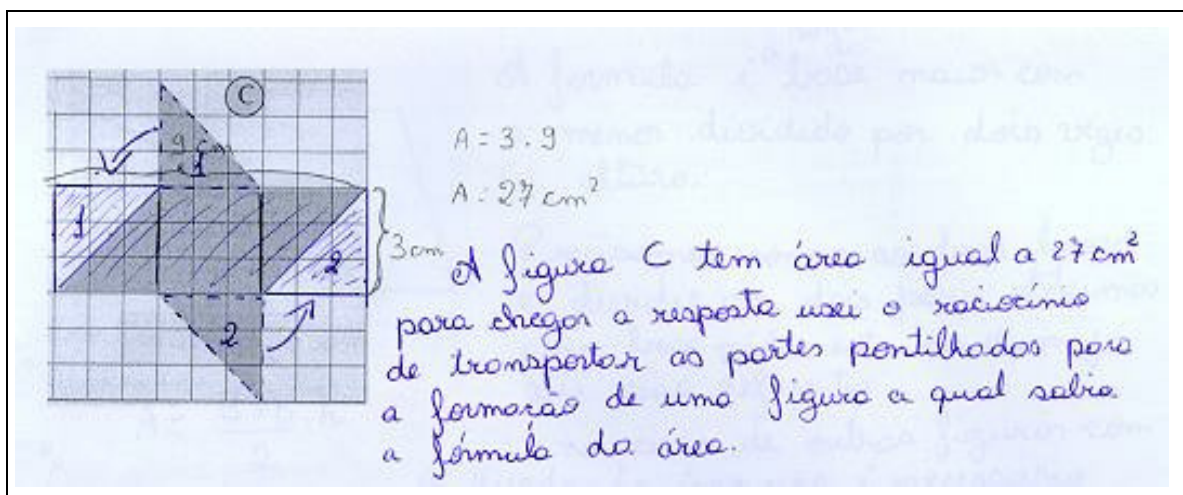 C
9 cm
1
1
2
2
3cm
A = 3 . 9
A = 27 cm²
A figura C tem área igual a 27cm²
para chegar a resposta usei o raciocínio
de transportar as partes pontilhados para
a formação de uma figura a qual sabia
a fórmula da área.